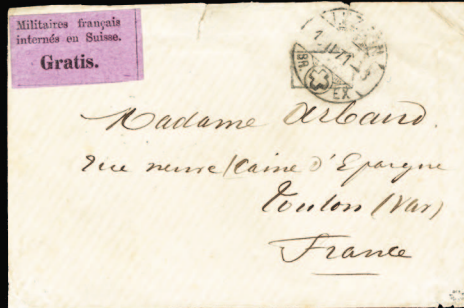 Militaires français
internés en Suisse.
Gratis.
BR EX
Madame Arbaud.
Rue neuve (Caine d'Epargne
Toulon (Var)
France